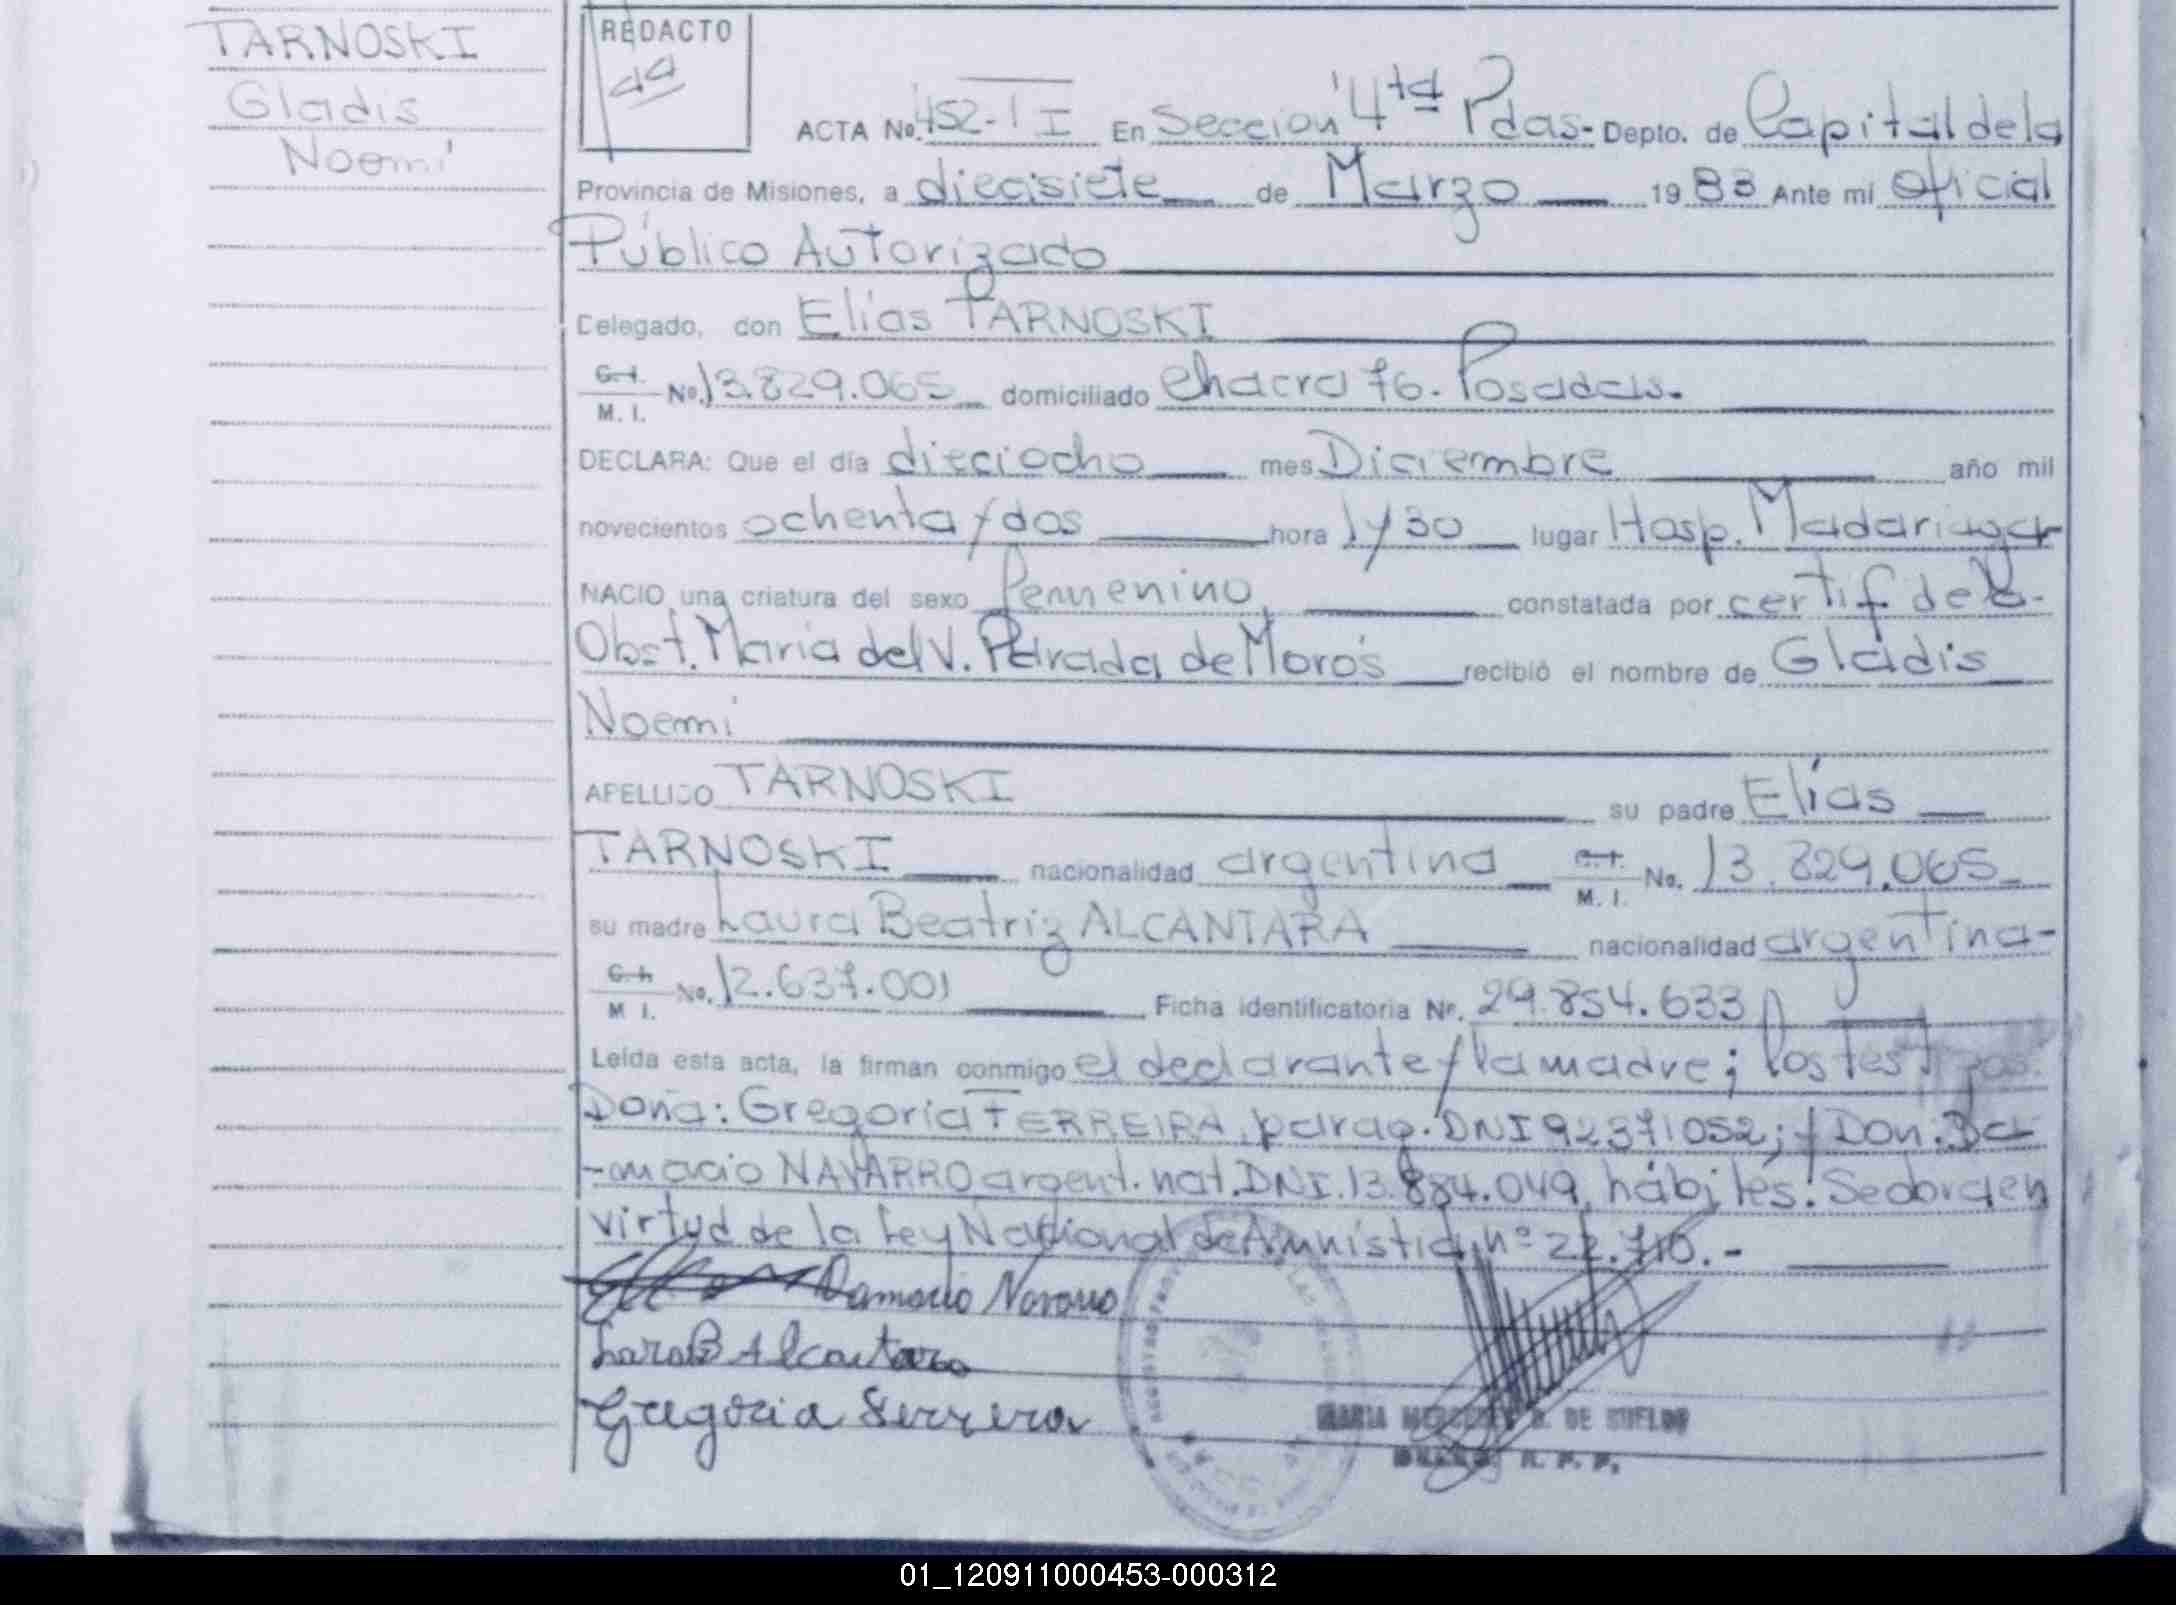 TARNOSKI
Gladis
Noemí
REDACTO
ACTA No. 452-T I En Sección 4ta Pdas- Depto. de Capital de la
Provincia de Misiones, a diecisiete de Marzo 1983 Ante mí Oficial
Público Autorizado
Delegado, don Elías TARNOSKI
C. I. M. I. No. 13.829.065 domiciliado Chacra 76. Posadas.
DECLARA: Que el día dieciocho mes Diciembre año mil
novecientos ochenta y dos hora 1y30 lugar Hosp. Madariaga
NACIO una criatura del sexo femenino, constatada por certif de la
Obst. María del V. Parada de Morós recibió el nombre de Gladis
Noemí
APELLIDO TARNOSKI su padre Elías
TARNOSKI nacionalidad argentina C. I. M. I. No. 13.829.065
su madre Laura Beatriz ALCANTARA nacionalidad argentina-
C. I. M. I. No. 12.637.001 Ficha identificatoria Nº. 29.854.633
Leída esta acta, la firman conmigo el declarante y la madre; los testigos
Doña: Gregoria FERREIRA, parag. DNI 92371052; y Don: Da-
-macio NAVARRO argent. nat. DNI. 13.884.049, hábiles. Se labra en
virtud de la Ley Nacional de Amnistía nº 22.710.-
Damacio Navarro
Lara B Alcantara
Gregoria Ferrera
MARIA MERCEDES DE
R. P. P.
01_120911000453-000312